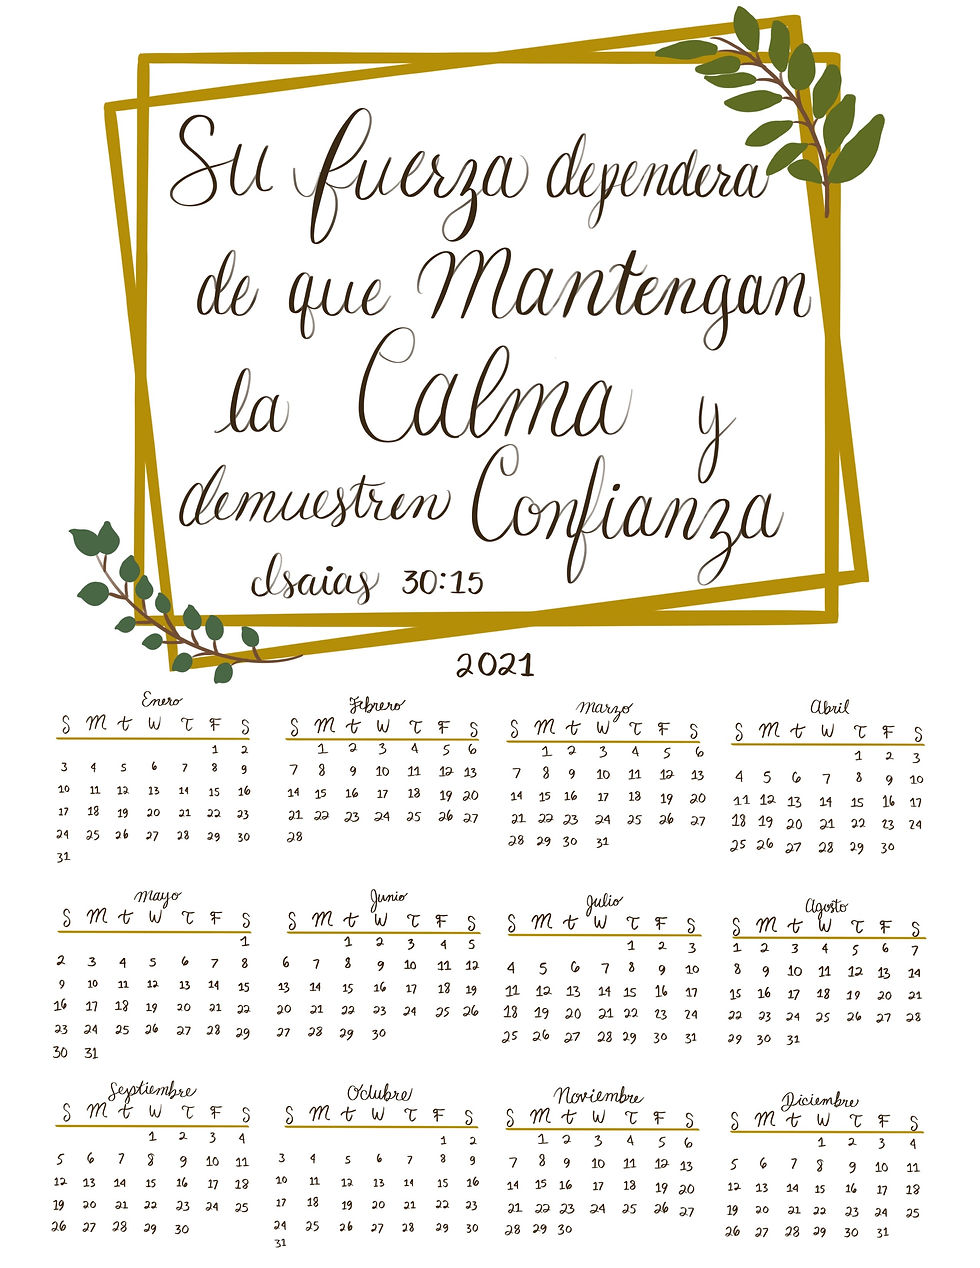 Su fuerza dependera
de que Mantengan
la Calma y
demuestren Confianza
Isaias 30:15
2021
Enero
S M t W T F S
1 2
3 4 5 6 7 8 9
10 11 12 13 14 15 16
17 18 19 20 21 22 23
24 25 26 27 28 29 30
31
Febrero
S M t W T F S
1 2 3 4 5 6
7 8 9 10 11 12 13
14 15 16 17 18 19 20
21 22 23 24 25 26 27
28
Marzo
S M t W T F S
1 2 3 4 5 6
7 8 9 10 11 12 13
14 15 16 17 18 19 20
21 22 23 24 25 26 27
28 29 30 31
Abril
S M t W T F S
1 2 3
4 5 6 7 8 9 10
11 12 13 14 15 16 17
18 19 20 21 22 23 24
25 26 27 28 29 30
Mayo
S M t W T F S
1
2 3 4 5 6 7 8
9 10 11 12 13 14 15
16 17 18 19 20 21 22
23 24 25 26 27 28 29
30 31
Junio
S M t W T F S
1 2 3 4 5
6 7 8 9 10 11 12
13 14 15 16 17 18 19
20 21 22 23 24 25 26
27 28 29 30
Julio
S M t W T F S
1 2 3
4 5 6 7 8 9 10
11 12 13 14 15 16 17
18 19 20 21 22 23 24
25 26 27 28 29 30 31
Agosto
S M t W T F S
1 2 3 4 5 6 7
8 9 10 11 12 13 14
15 16 17 18 19 20 21
22 23 24 25 26 27 28
29 30 31
Septiembre
S M t W T F S
1 2 3 4
5 6 7 8 9 10 11
12 13 14 15 16 17 18
19 20 21 22 23 24 25
26 27 28 29 30
Octubre
S M t W T F S
1 2
3 4 5 6 7 8 9
10 11 12 13 14 15 16
17 18 19 20 21 22 23
24 25 26 27 28 29 30
31
Noviembre
S M t W T F S
1 2 3 4 5 6
7 8 9 10 11 12 13
14 15 16 17 18 19 20
21 22 23 24 25 26 27
28 29 30
Diciembre
S M t W T F S
1 2 3 4
5 6 7 8 9 10 11
12 13 14 15 16 17 18
19 20 21 22 23 24 25
26 27 28 29 30 31